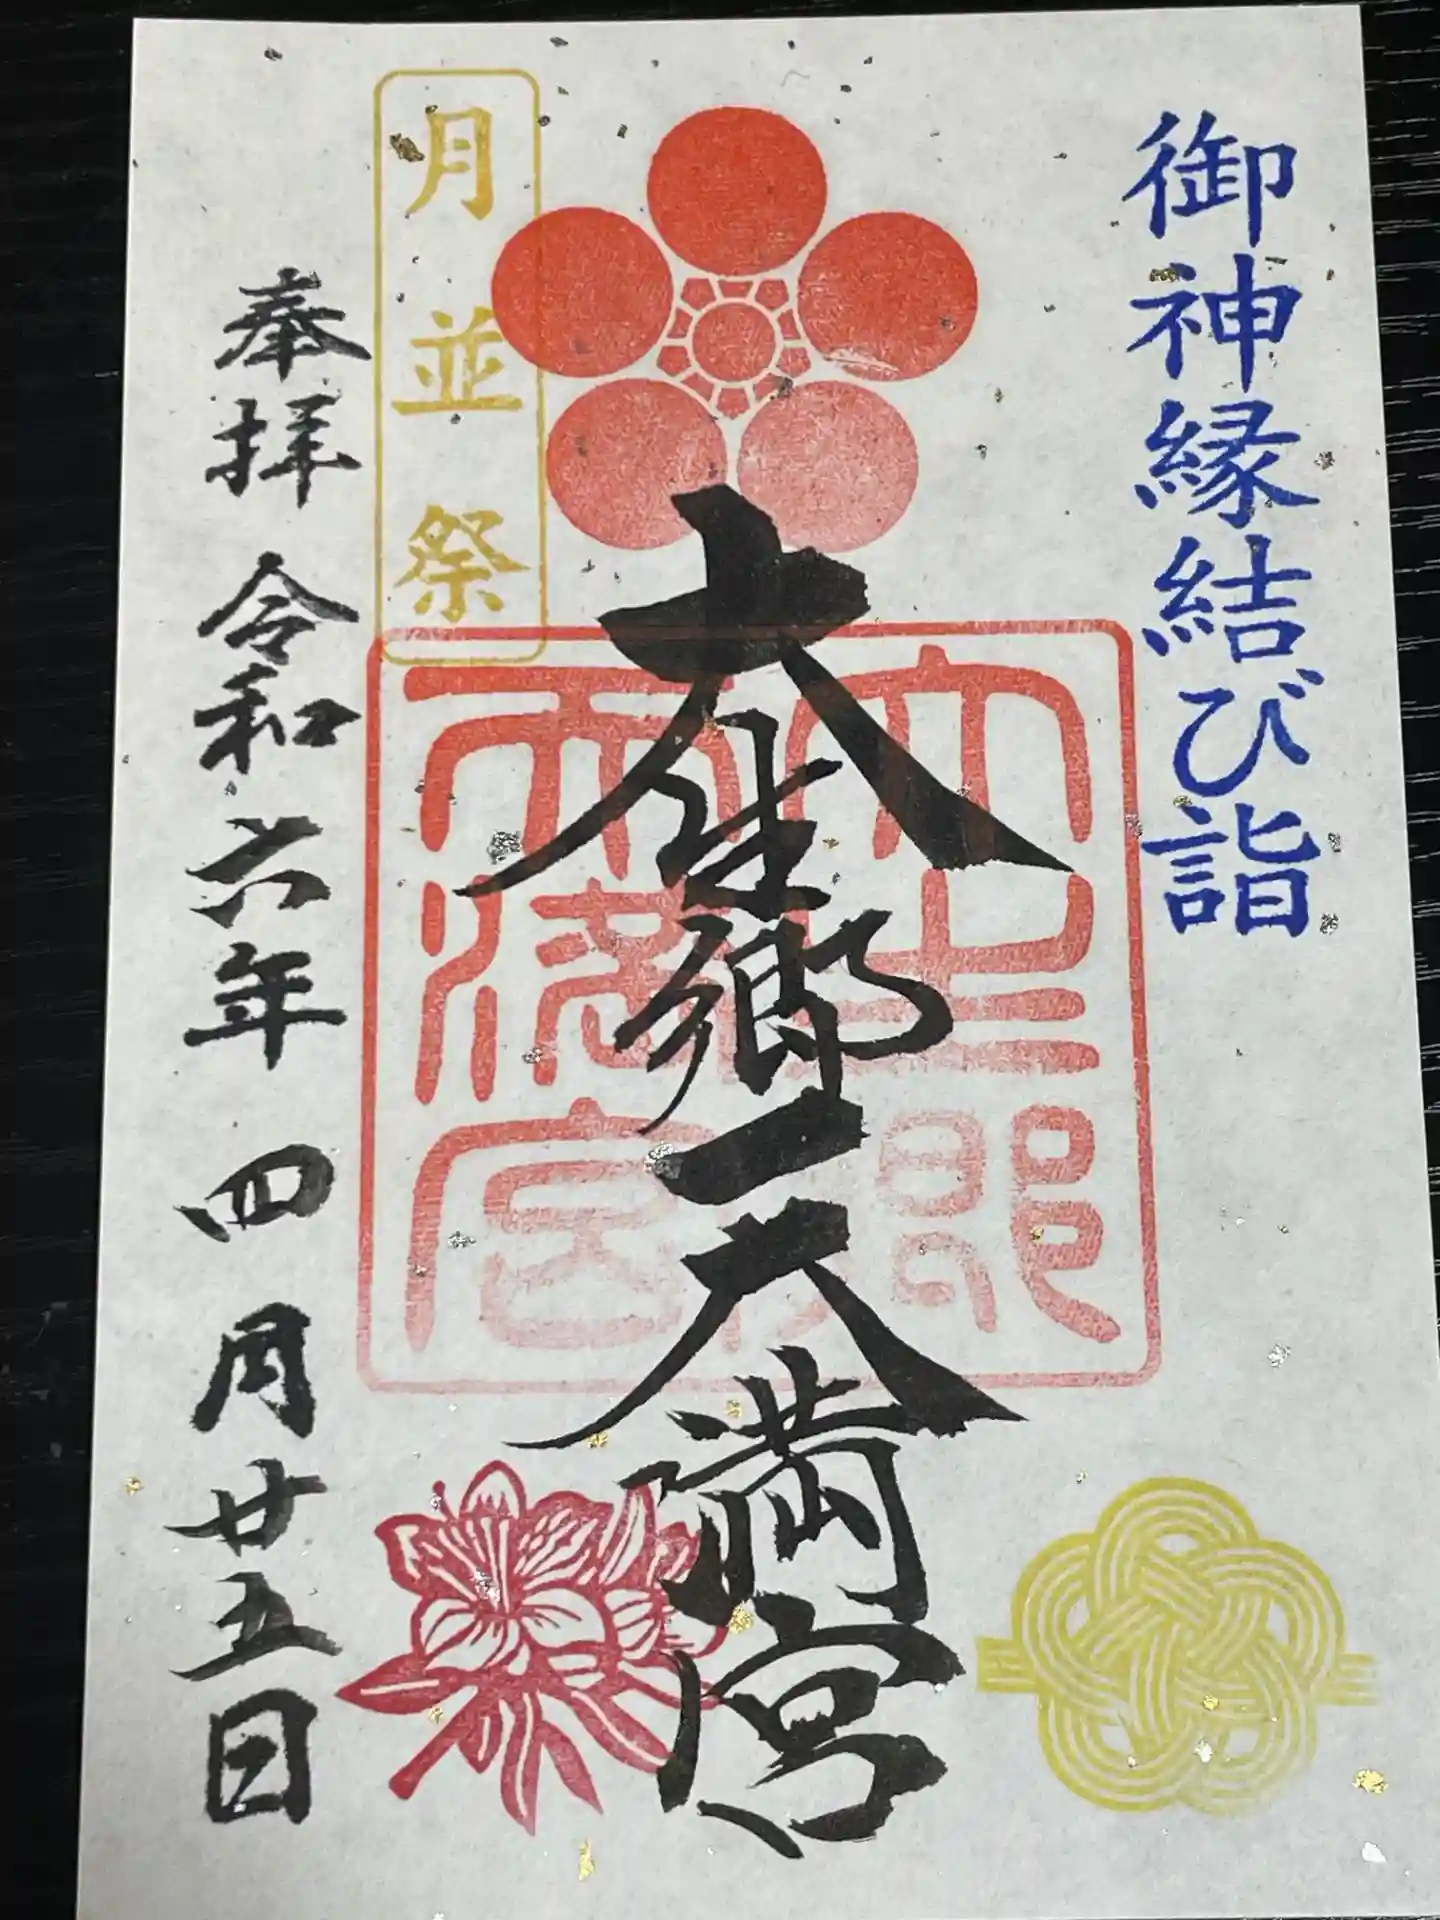 御神縁結び詣
大生郷天満宮
大生郷天満宮
月並祭
奉拝 令和六年 四月廿五日